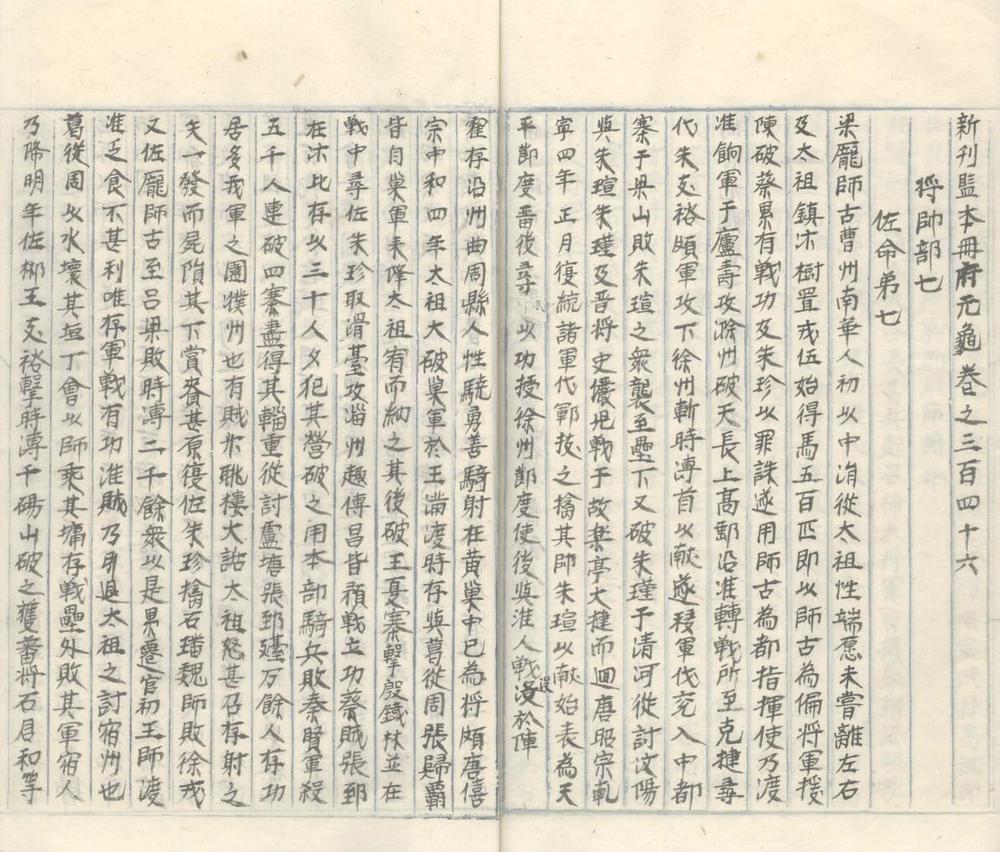 新刊監本冊府元龜卷之三百四十六
將帥部七
佐命弟七
梁龐師古曹州南華人初以中涓從太祖性端愿未嘗離左右
及太祖鎮汴樹置戎伍始得馬五百匹即以師古為偏將軍援
陳破蔡累有戰功及朱珍以罪誅遂用師古為都指揮使乃渡
准餉軍于廬壽攻滁州破天長上高郵沿淮轉戰所至克捷尋
代朱友裕頗軍攻下徐州斬時溥首以献遂移軍伐兖入中都
寨于梁山敗朱瑄之衆襲至壘下又破朱瑾于清河從討汶陽
與朱瑄朱瑾及晋將史儼兒戰于故樂亭大捷而迴唐昭宗乾
寧四年正月復統諸軍代鄆拔之擒其師朱瑄以献始表為天
平節度畨後尋以功授徐州節度使後與淮人戰没於陣
霍存沿州曲周縣人性驍勇善騎射在黄巢中已為將頗唐僖
宗中和四年太祖大破巢軍於王滿渡時存與葛從周張歸霸
皆自巢軍來降太祖宥而納之其後破王夏寨擊殷鐵林並在
戰中尋佐朱珍取滑臺攻淄州趣傅昌皆預戰立功蔡賊張郅
在汴北存以三十人夕犯其營破之用本部騎兵敗秦賢軍殺
五千人連破四寨盡得其輜重從討盧塘張郅殪万餘人存功
居多我軍之圍濮州也有賊乘眺樓大詬太祖怒甚召存射之
矢一發而屍隕其下賞賚甚厚復佐朱珍擒石璠魏師敗徐戎
又佐龐師古至吕梁敗時溥二千餘衆以是累遷官初王師渡
准乏食不甚利唯存軍戰有功淮賊乃引退太祖之討宿州也
葛從周以水壞其垣丁會以師乘其墉存戰壘外敗其軍宿人
乃降明年佐郴王友裕擊時溥于碭山破之獲畨將石君和等